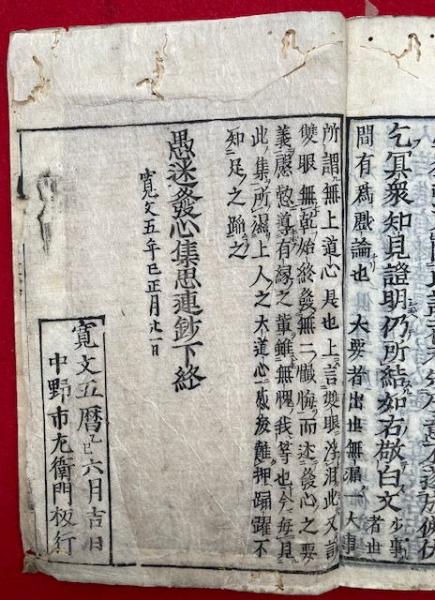 乞冥衆知見證明仍所結如右敬白文
間有為戯論也 大要者出也無漏一大事
所謂無上道心是也上言雙眼浮涙此又言
雙眼無乾始終發無二懺悔而述發心之要
義慇懃導有縁之輩雖無愧我等也今毎見
此集所濕上人之大道心一感涙難押踊躍不
知足之蹈之
愚迷發心集思連鈔下終
寛文五年乙巳正月廿一日
寛文五暦乙巳六月吉日
中野市左衛門板行